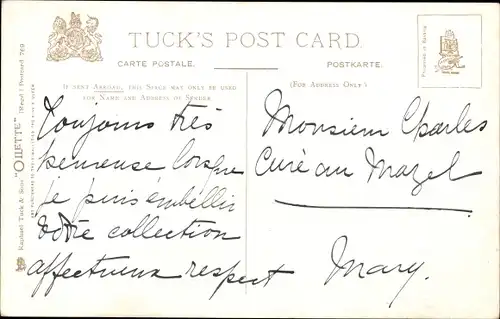 TUCK'S POST CARD.
CARTE POSTALE.
POSTKARTE.
IF SENT ABROAD, THIS SPACE MAY ONLY BE USED
FOR NAME AND ADDRESS OF SENDER.
(FOR ADDRESS ONLY.)
Raphael Tuck & Sons' "OILETTE" [Regd.] Postcard 769
Toujours très
heureuse lorsque
je puis embellir
votre collection
affectueux respect
Monsieur Charles
Curé au Mazel
Mary.